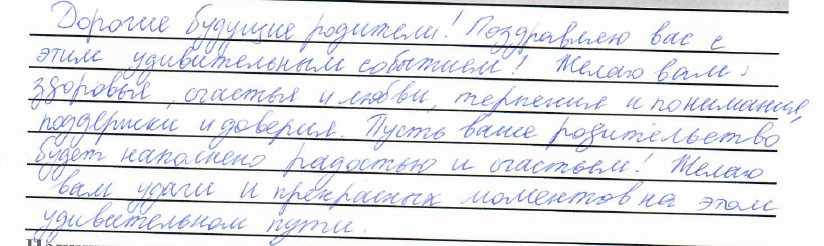 Дорогие будущие родители! Поздравляю вас с
этим удивительным событием! Желаю вам:
здоровья, счастья и любви, терпения и понимания,
поддержки и доверия. Пусть ваше родительство
будет наполнено радостью и счастьем! Желаю
вам удачи и прекрасных моментов на этом
удивительном пути.